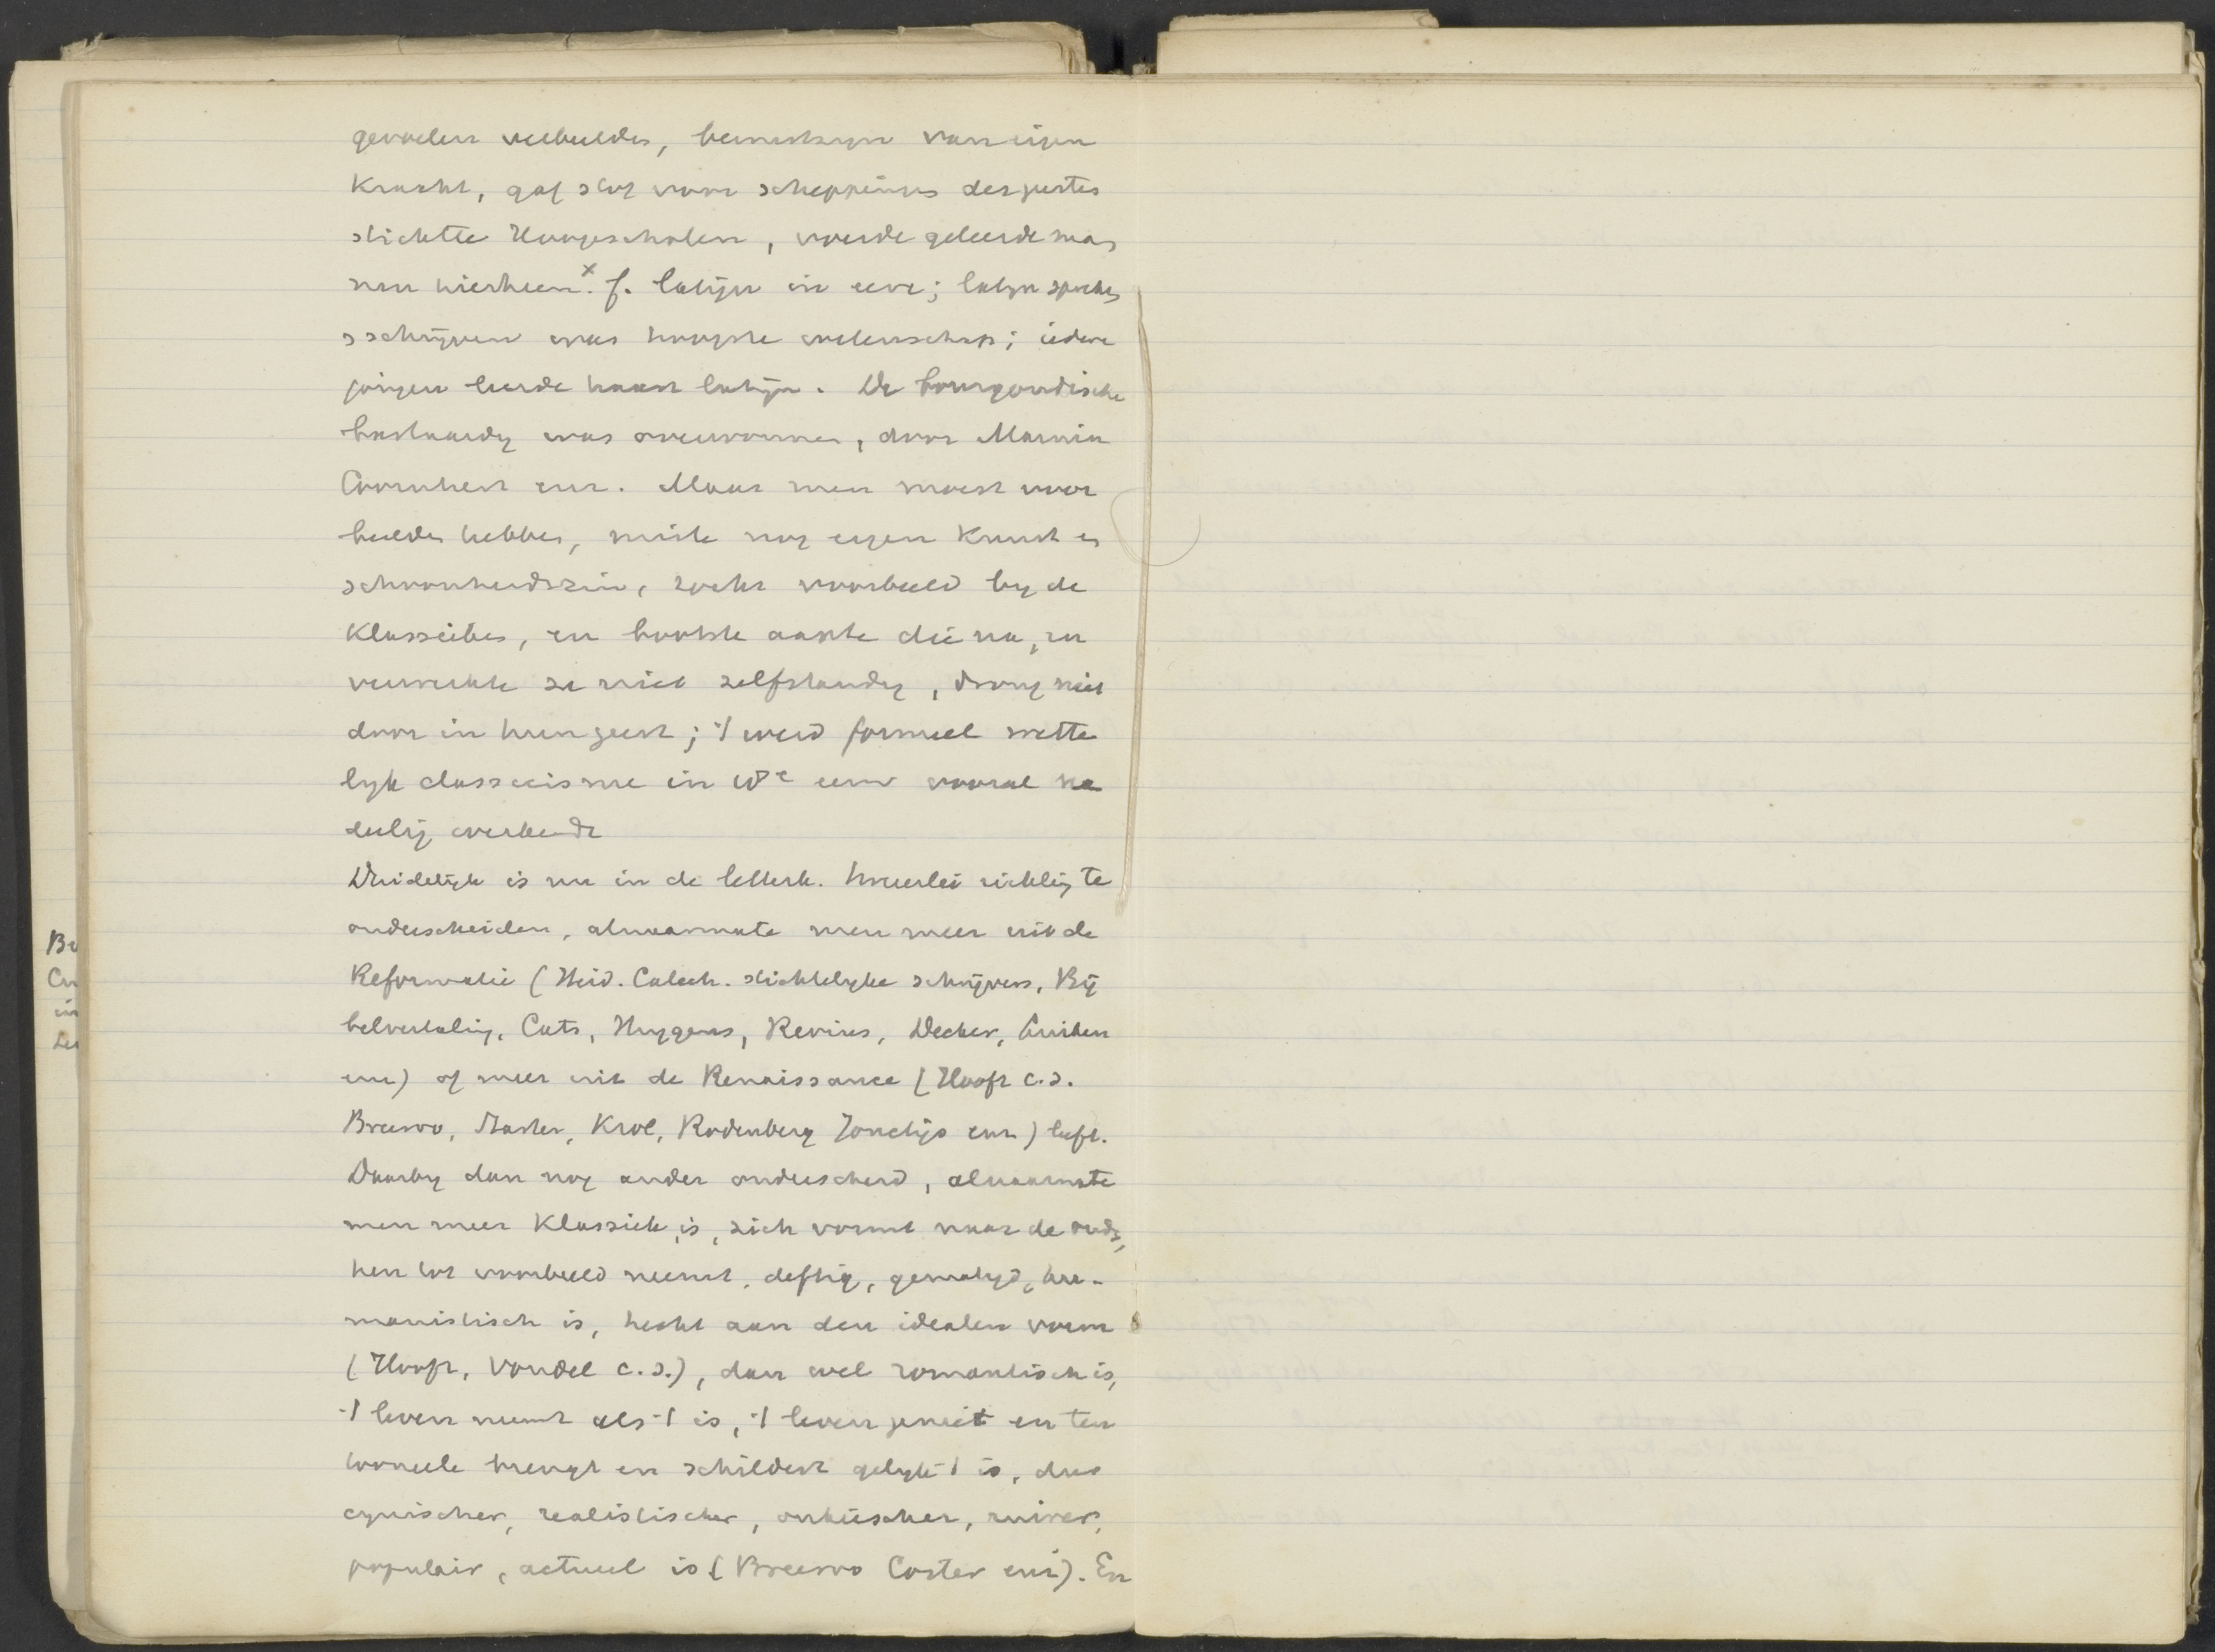 gevoelen verbeelden, bewustzyn van eigen
Kracht, gaf stof voor scheppingen des geestes
stichtte Hoogescholen, voerde geleerde man
nen hierheen x. f. latijn in eere; latyn spreken
schrijven was hoogste wetenschap; iedere
jongen leerde haast latijn. De bourgondische
bastaardy was overwonnen, door Marnix
Coornhert enz. Maar men moest voor
beelden hebben, miste nog eigen Kunst en
schoonheidszin, zocht voorbeeld by de
Klassieken, en bootste die na, en
verwerkte ze niet zelfstandig, drong niet
door in hun geest; 't werd formeel wette
lyk classicisme in 18e eeuw vooral na
deelig werkende
Duidelijk is nu in de letterk. tweeerlei richting te
onderscheiden, alnaarmate men meer uit de
Reformatie (Heid. Catech. stichtelyke schrijvers, Bij
belvertaling, Cats, Huygens, Revius, Decker,
enz) of meer uit de Renaissance (Hooft c.s.
Breeroo, Koster, Krol, Rodenberg Jonctijs enz) leeft.
Daarby dan nog ander onderscheid, alnaarmate
men meer Klassiek is, zich vormt naar de ouden,
hen tot voorbeeld neemt, deftig, gematigd, hu-
manistisch is, hecht aan den idealen vorm
(Hooft, Vondel c.s.), dan wel romantisch is,
't leven neemt als 't is, 't leven geniet en ten
tooneele brengt en schildert gelyk 't is, dus
cynischer, realistischer, onkuischer, ruiver,
populair, actueel is (Breeroo Coster enz). En
Br
in